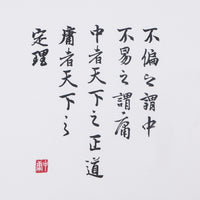 不偏之謂中
不易之謂庸
中者天下之正道
庸者天下之
定理